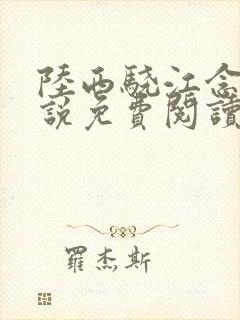 陸西驍江念
說免費閱讀
羅杰斯